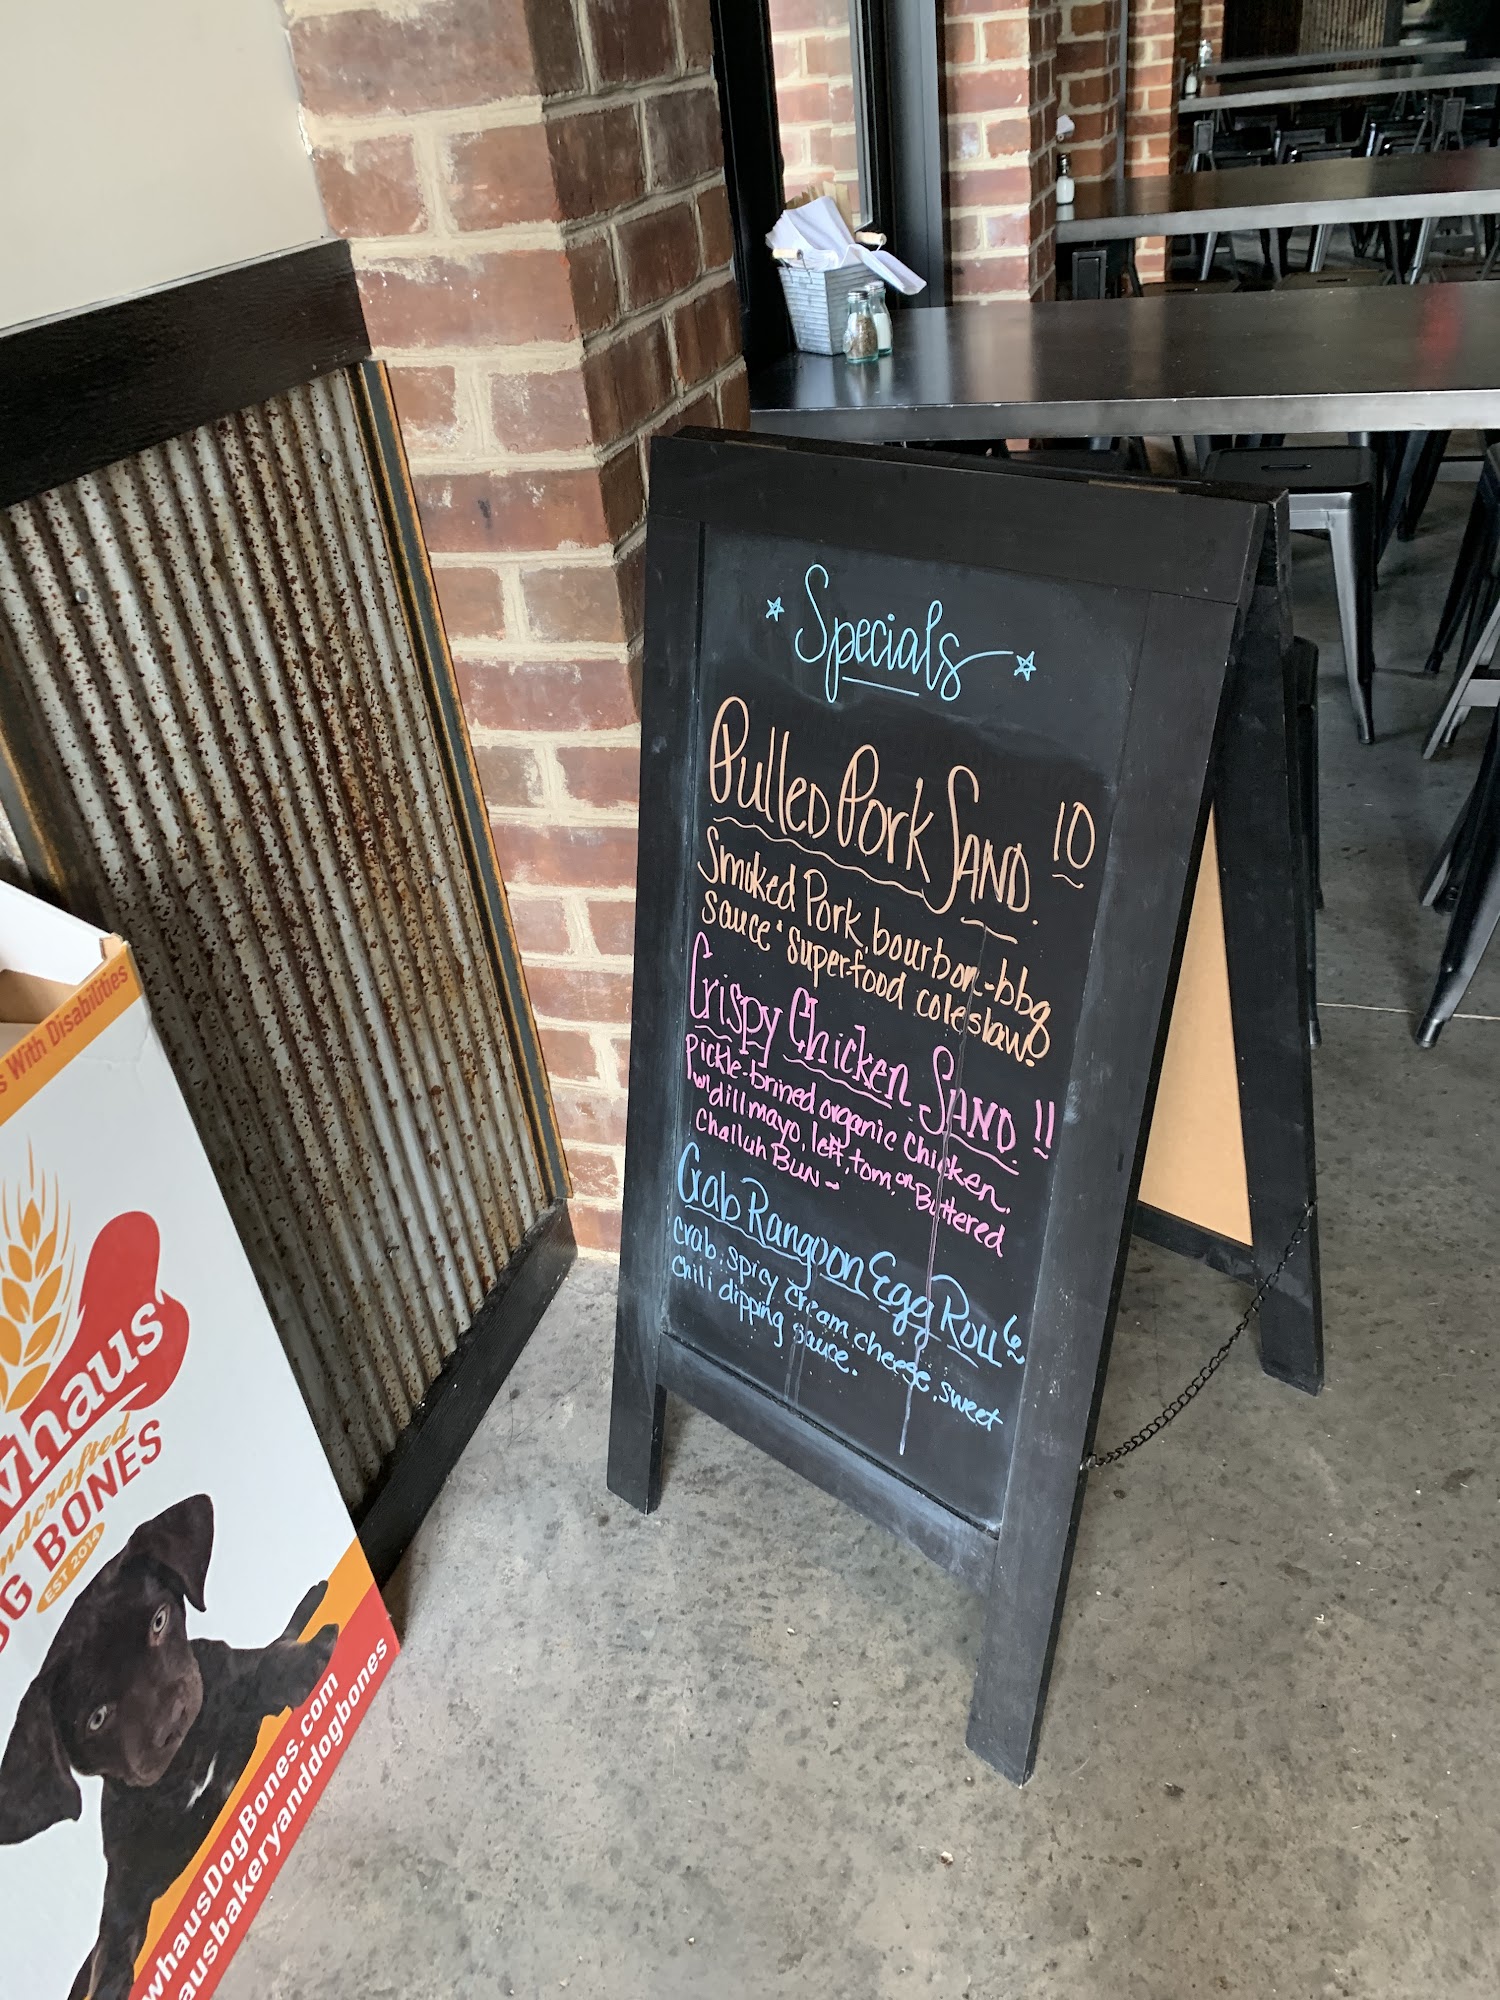 Specials
Pulled Pork Sand. 10
Smoked Pork, bourbon-bbq
sauce • superfood coleslaw!
Crispy Chicken Sand. 11
Pickle-brined organic chicken,
w/ dill mayo, lett, tom, on Buttered
Challuh Bun ~
Crab Rangoon Egg Roll 6
Crab, spicy cream cheese, sweet
chili dipping sauce.
s With Disabilities
whaus
ndcrafted
OG BONES
EST 2014
whausDogBones.com
ausbakeryanddogbones